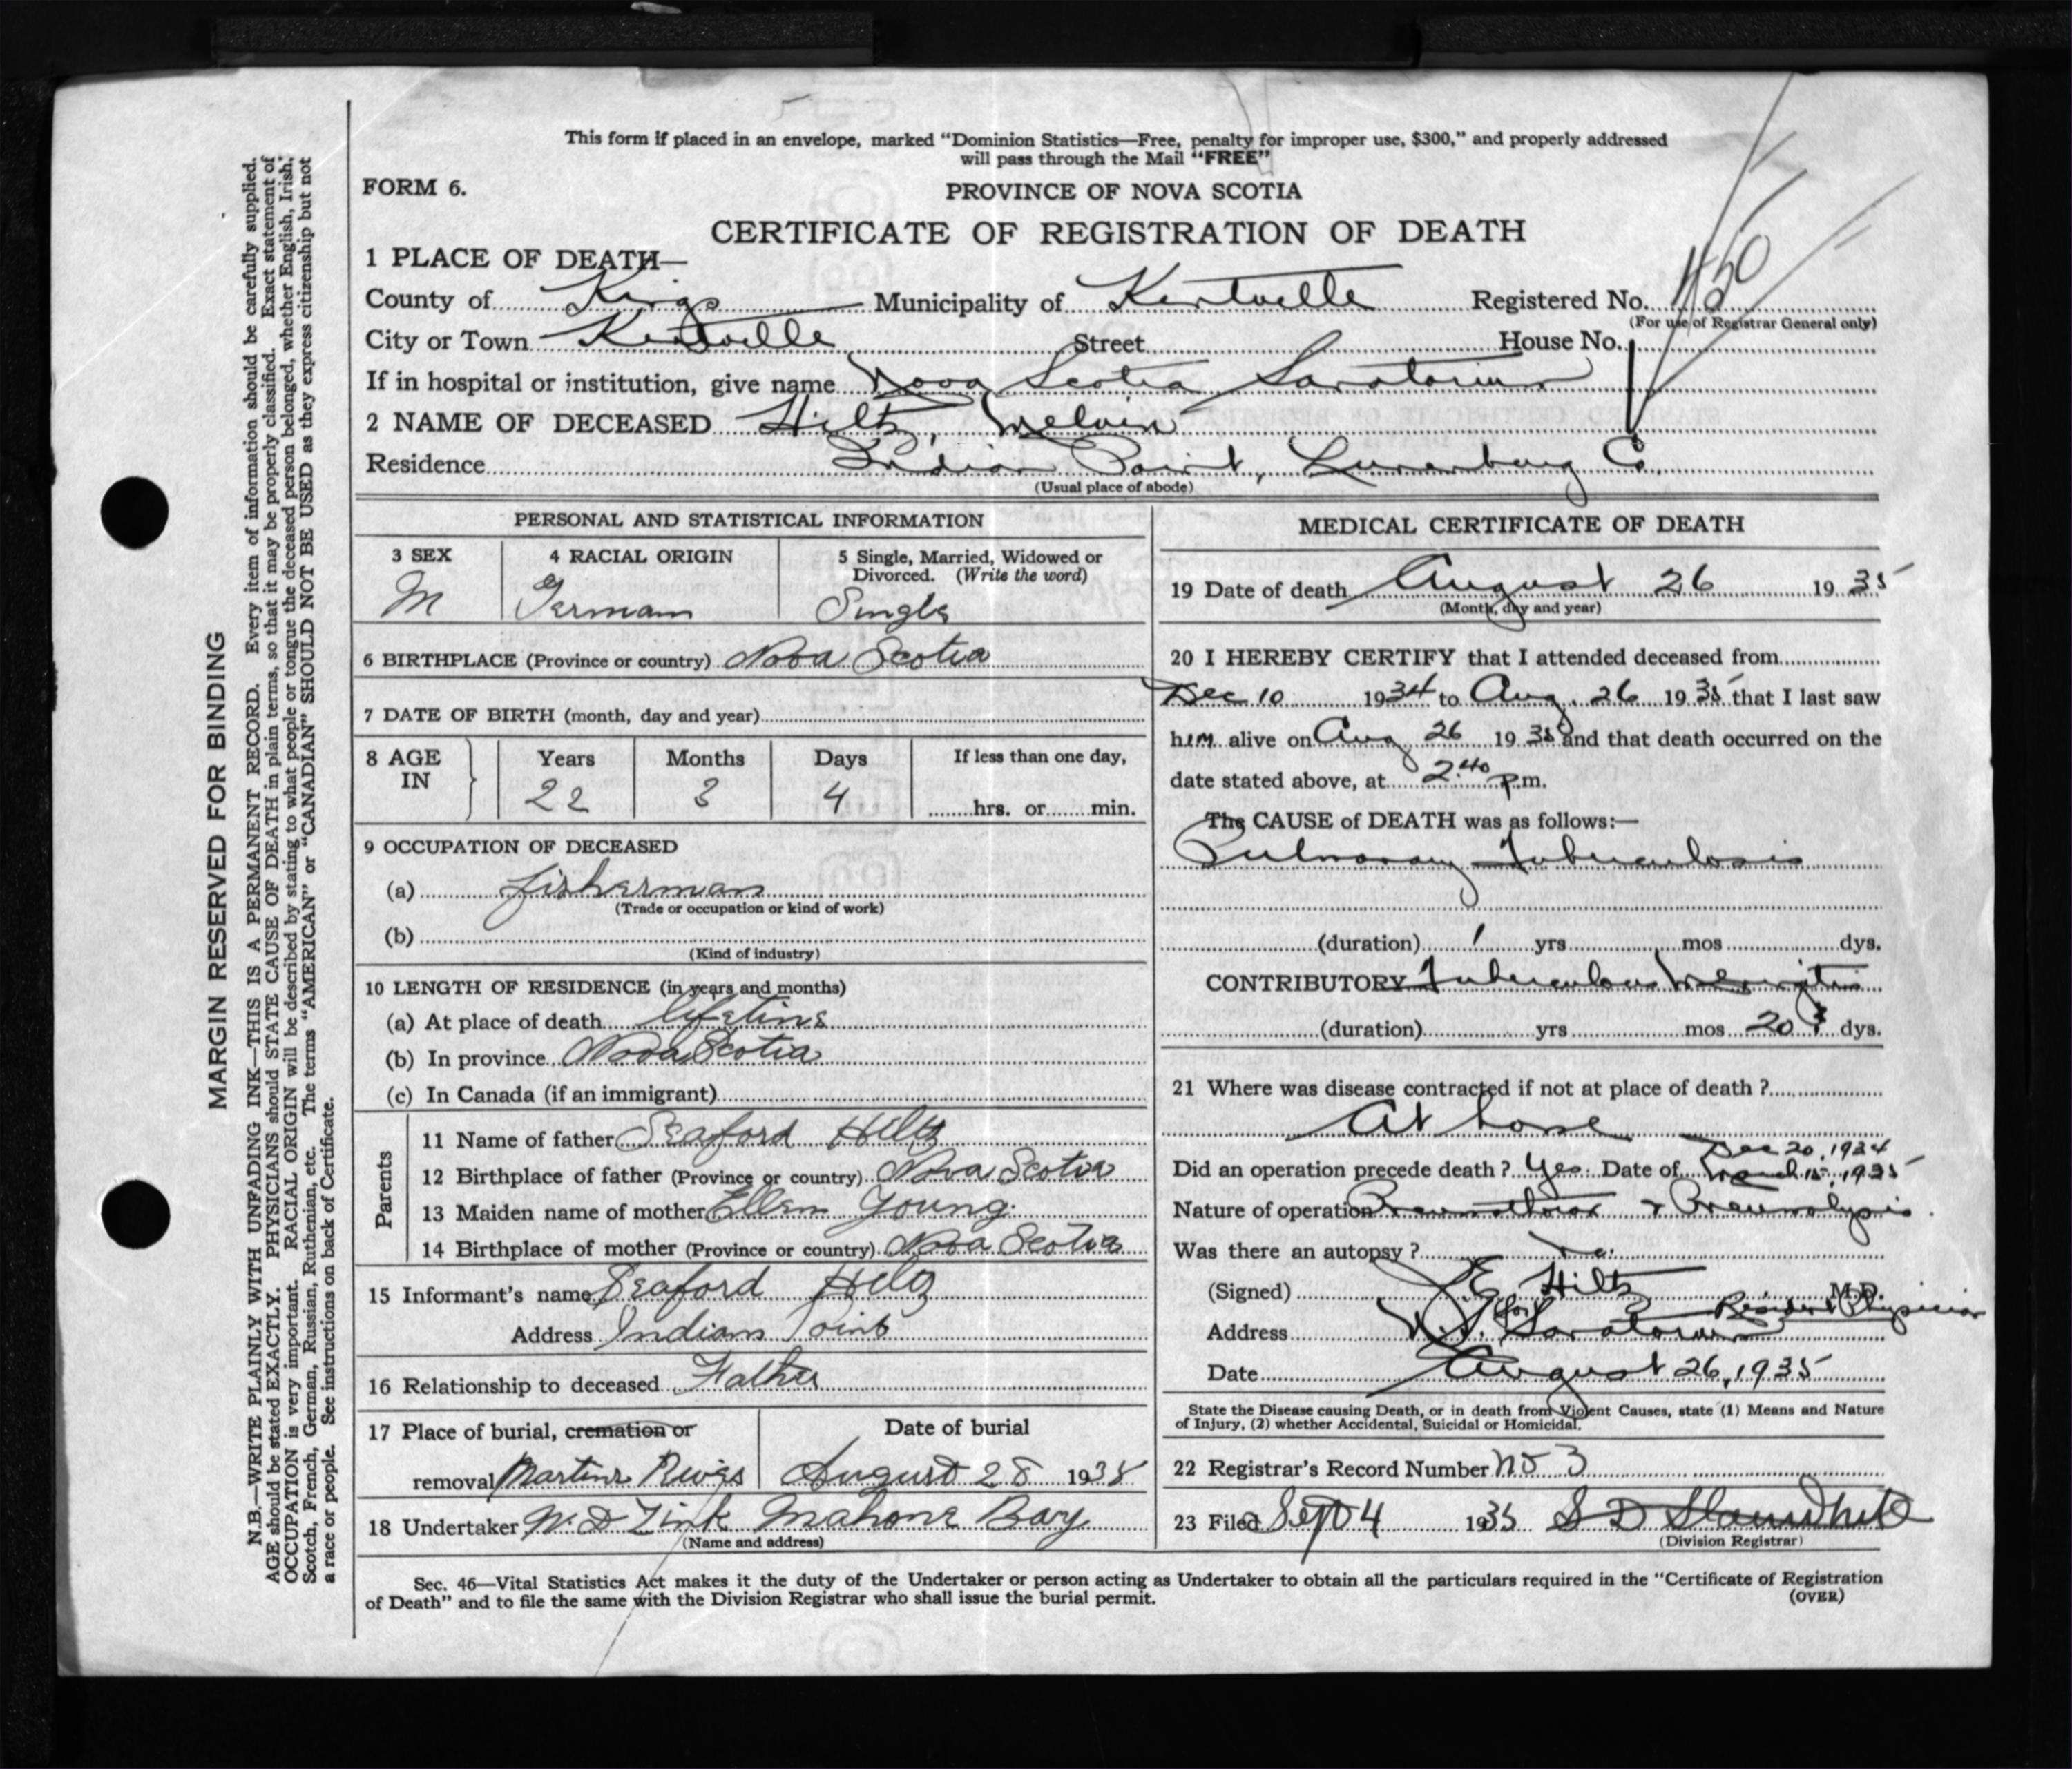 This form if placed in an envelope, marked “Dominion Statistics—Free, penalty for improper use, $300,” and properly addressed
will pass through the Mail “FREE”
FORM 6.
PROVINCE OF NOVA SCOTIA
CERTIFICATE OF REGISTRATION OF DEATH
1 PLACE OF DEATH—
County of Kings Municipality of Kentville Registered No.
(For use of Registrar General only)
City or Town Kentville Street House No.
If in hospital or institution, give name Nova Scotia Sanatorium
2 NAME OF DECEASED Hiltz, Melvin
Residence Indian Point, Lunenburg Co.
(Usual place of abode)
PERSONAL AND STATISTICAL INFORMATION
3 SEX 4 RACIAL ORIGIN 5 Single, Married, Widowed or
Divorced. (Write the word)
M German Single
6 BIRTHPLACE (Province or country) Nova Scotia
7 DATE OF BIRTH (month, day and year)
8 AGE IN Years Months Days If less than one day,
22 3 4 hrs. or min.
9 OCCUPATION OF DECEASED
(a) fisherman
(Trade or occupation or kind of work)
(b)
(Kind of industry)
10 LENGTH OF RESIDENCE (in years and months)
(a) At place of death lifetime
(b) In province Nova Scotia
(c) In Canada (if an immigrant)
Parents
11 Name of father Seaford Hiltz
12 Birthplace of father (Province or country) Nova Scotia
13 Maiden name of mother Ellen Young
14 Birthplace of mother (Province or country) Nova Scotia
15 Informant's name Seaford Hiltz
Address Indian Point
16 Relationship to deceased Father
17 Place of burial, cremation or Date of burial
removal Martins River August 28 1935
18 Undertaker W. D Zink Mahone Bay
(Name and address)
MEDICAL CERTIFICATE OF DEATH
19 Date of death August 26 1935
(Month, day and year)
20 I HEREBY CERTIFY that I attended deceased from
Dec 10 1934 to Aug. 26 1935 that I last saw
him alive on Aug 26 1935 and that death occurred on the
date stated above, at 2.40 p.m.
The CAUSE of DEATH was as follows:—
Pulmonary Tuberculosis
(duration) 1 yrs mos dys.
CONTRIBUTORY Tuberculous Meningitis
(duration) yrs mos 20 ? dys.
21 Where was disease contracted if not at place of death ?
At home
Dec 20, 1934
Did an operation precede death ? Yes. Date of March 15, 1935
Nature of operation Pneumothorax + Pneumolysis.
Was there an autopsy ? No.
(Signed) J. E. Hiltz M.D.
for Resident Physician
Address N.S. Sanatorium
Date August 26, 1935
State the Disease causing Death, or in death from Violent Causes, state (1) Means and Nature
of Injury, (2) whether Accidental, Suicidal or Homicidal.
22 Registrar's Record Number No 3
23 Filed Sept 4 1935 S D Slauwhite
(Division Registrar)
Sec. 46—Vital Statistics Act makes it the duty of the Undertaker or person acting as Undertaker to obtain all the particulars required in the “Certificate of Registration
of Death” and to file the same with the Division Registrar who shall issue the burial permit.
(OVER)
MARGIN RESERVED FOR BINDING
N.B.—WRITE PLAINLY WITH UNFADING INK—THIS IS A PERMANENT RECORD. Every item of information should be carefully supplied.
AGE should be stated EXACTLY. PHYSICIANS should STATE CAUSE OF DEATH in plain terms, so that it may be properly classified. Exact statement of
OCCUPATION is very important. RACIAL ORIGIN will be described by stating to what people or tongue the deceased person belonged, whether English, Irish,
Scotch, French, German, Russian, Ruthenian, etc. The terms “AMERICAN” or “CANADIAN” SHOULD NOT BE USED as they express citizenship but not
a race or people. See instructions on back of Certificate.